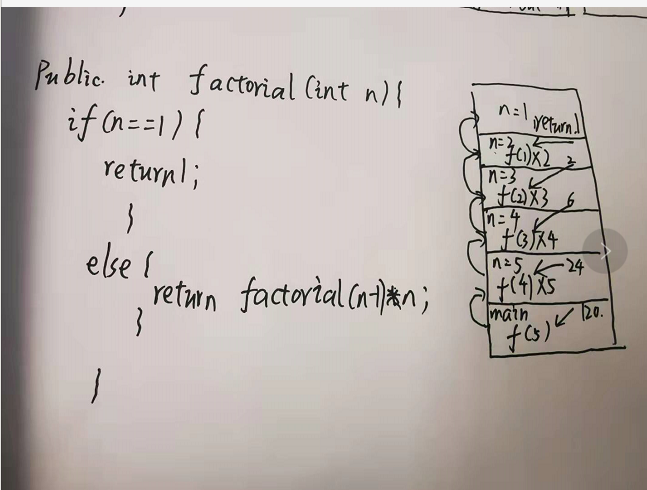 Public int factorial (int n) {
if (n==1) {
return 1;
}
else {
return factorial (n-1)*n;
}
}
n=1 return 1
n=2
f(1)X2 2
n=3
f(2)X3 6
n=4
f(3)X4
n=5 24
f(4)X5
main 120.
f(5)